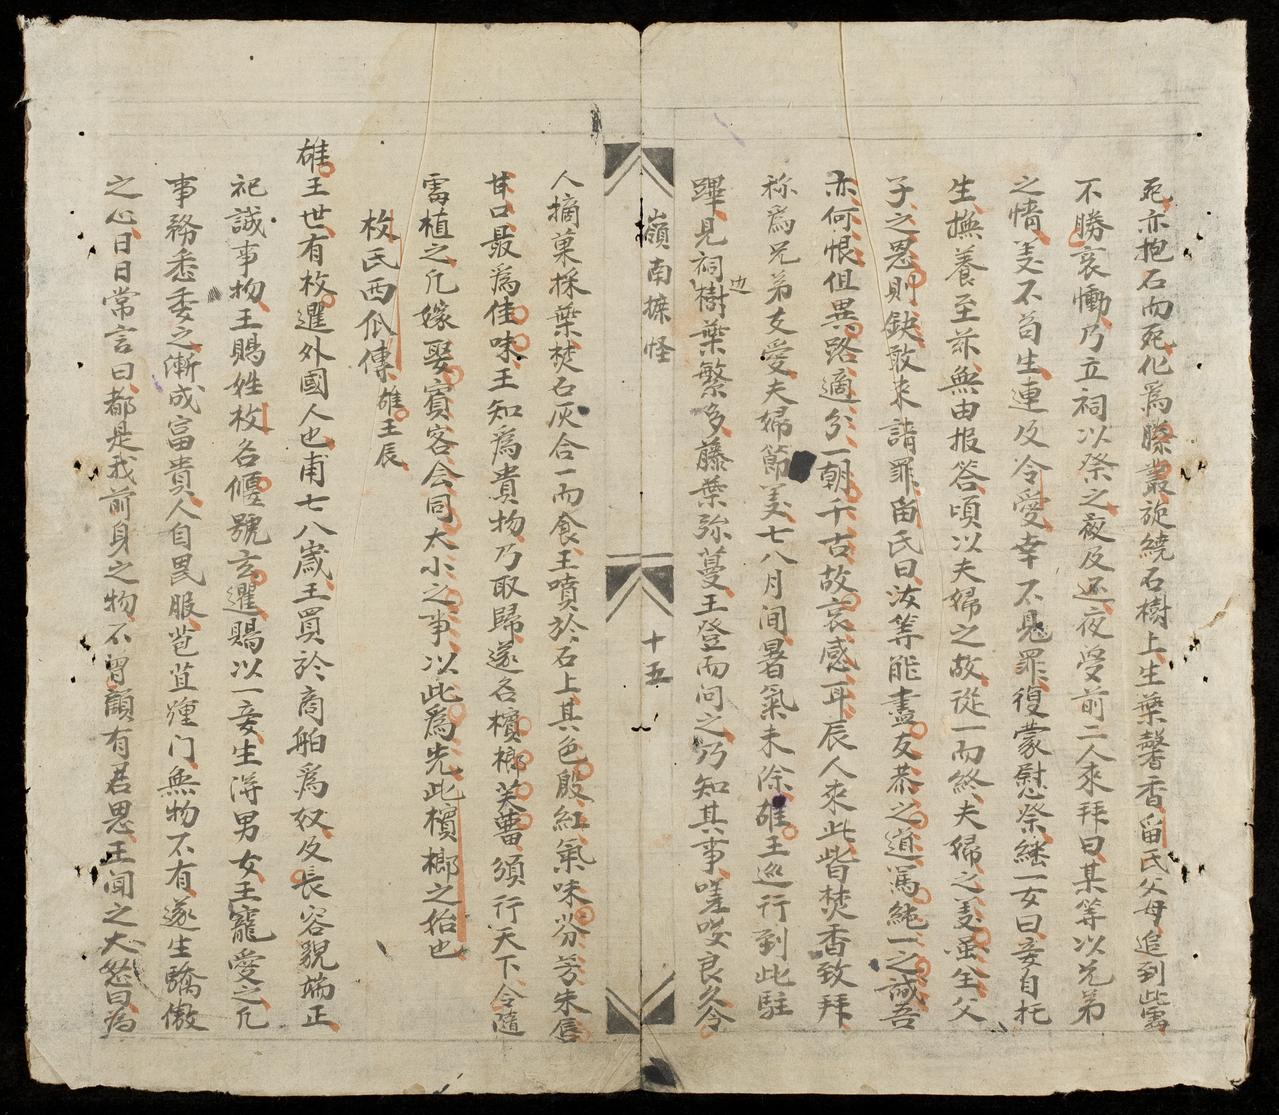 死亦抱石而死化爲藤叢旋繞石樹上生葉馨香畱氏父母追到此寓
不勝哀慟乃立祠以祭之夜及还夜受前二人來拜曰某等以兄弟
之情美不苟生連及令愛幸不見罪復蒙慰祭継一女曰妾自托
生撫養至茶無由报答頃以夫婦之故從一而終夫婦之美虽全父
子之恩則缺敢來請罪畱氏曰汝等能盡友恭之道篤純一之誠吾
亦何恨但異路適分一朝千古故哀感耳辰人來此皆焚香致拜
称爲兄弟友愛夫婦節美七八月间暑氣未涂雄王巡行到此駐
蹕見祠边樹葉繁多藤葉弥蔓王登而问之乃知其事嗟哎良久令
嶺南摭怪
十五
人摘菓採葉焚石灰合一而食王噴於石上其色殷紅氣味芬芳朱唇
甘口最爲佳味王知爲貴物乃取歸遂名檳榔芙蕾頒行天下令隨
䨓植之凡嫁娶賓客会同大小之事以此爲先此檳榔之始也
枚氏西瓜傳雄王辰
雄王世有枚暹外國人也甫七八嵗王買於商舶爲奴及長容貌端正
祀誠事物王賜姓枚名偃號玄暹賜以一妾生淂男女王寵愛之凡
事務悉委之漸成富貴人自畏服苞苴㢆门無物不有遂生驕傲
之心日日常言曰都是我前身之物不曾顧有君恩王闻之大怒曰为